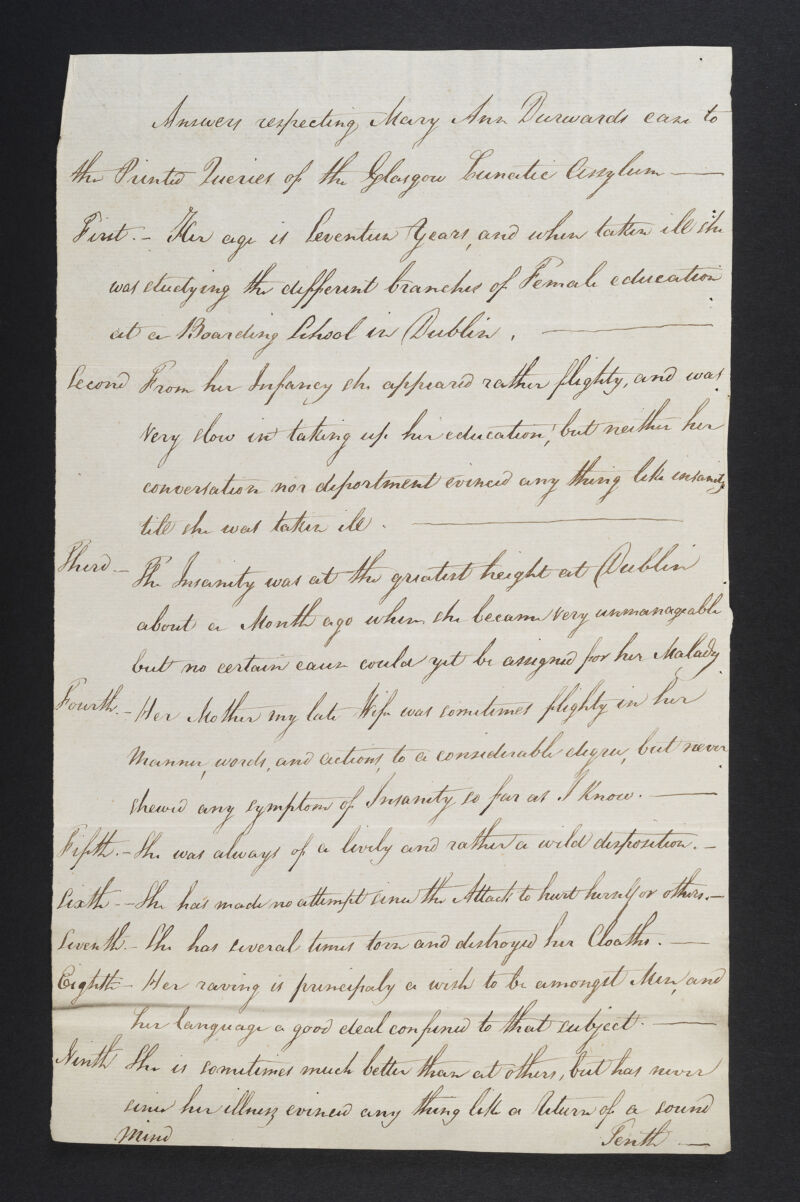 Answers respecting Mary Ann Durwards case to
the Printed Queries of the Glasgow Lunatic Assylum —
First. - Her age is Seventeen Years, and when taken ill she
was studying the different branches of Female education
at a Boarding School in Dublin. —
Second From her Infancy she appeared rather flighty, and was
very slow in taking up her education, but neither her
conversation nor deportment evinced any thing like insanity
till she was taken ill. —
Third - The Insanity was at the greatest height at Dublin
about a Month ago when she became very unmanageable
but no certain cause could yet be assigned for her Malady
Fourth. - Her Mother my late Wife was sometimes flighty in her
manner, words, and actions, to a considerable degree, but never
shewed any symptom of Insanity so far as I know. —
Fifth. - She was always of a lively and rather a wild disposition. -
Sixth - She has made no attempt since the Attack to hurt herself or others. -
Seventh - She has several times torn and destroyed her Cloaths. —
Eighth - Her raving is principaly a wish to be amongst Men, and
her language a good deal confined to that subject. —
Ninth She is sometimes much better than at others, but has never
since her illness evinced any thing like a return of a sound
mind
Tenth —